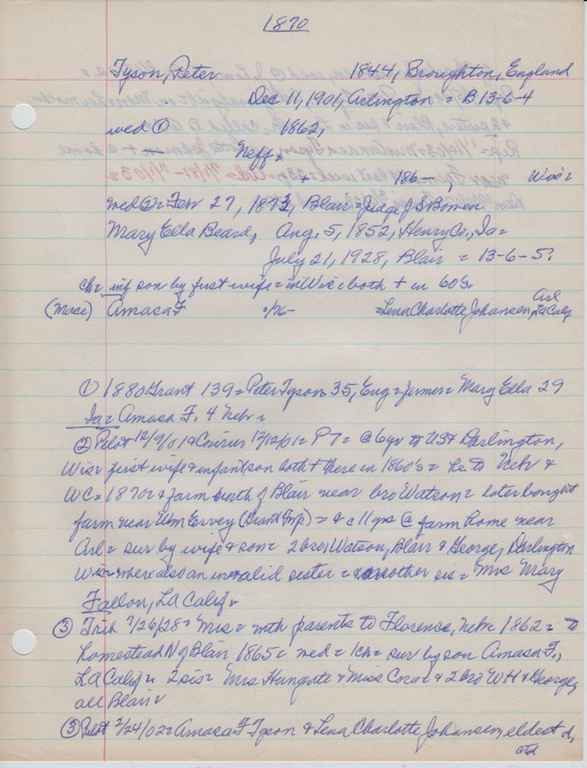 1870
Tyson, Peter 1844, Broughton, England
Dec 11, 1901, Arlington = B 13-6-4
wed ① 1862,
Neff,
+ 186-, Wis=
wed ② = Feb 27, 1873, Blair = Judge J S Bowen
Mary Ella Beard, Aug. 5, 1852, Henry Co., Ia=
July 21, 1928, Blair = 13-6-5?
ch= inf son by first wife = in Wis = both + in 60's
(Mose) Amasa F 0/76- = Lena Charlotte Johansen, Arl La Calif
① 1880 Grant 139 = Peter Tyson 35, Eng = farmer = Mary Ella 29
Ia = Amasa F, 4 Nebr =
② Pilot 12/9/01 & Courier 12/12/01 = PT = @ 6 yr to US & Darlington,
Wis = first wife & infant son both + there in 1860's = he to Nebr &
WC = 1870 = & farm north of Blair near bro Watson = later bought
farm near Wm Ervey (Grant Twp) = & c 11 yrs @ farm home near
Arl = sur by wife & son = 2 bro, Watson, Blair & George, Darlington
Wis = where also an invalid sister = another sis = Mrs Mary
Fallon, LA Calif =
③ Trib 7/26/28 = Mrs = with parents to Florence, Nebr 1862 = to
homestead N of Blair 1865 = wed = 1 ch = sur by son Amasa F.,
LA Calif = 2 sis = Mrs Hungate & Miss Cora & 2 bro W H & George,
all Blair =
③ Pilot 2/24/02 = Amasa F Tyson & Lena Charlotte Johansen, eldest d,